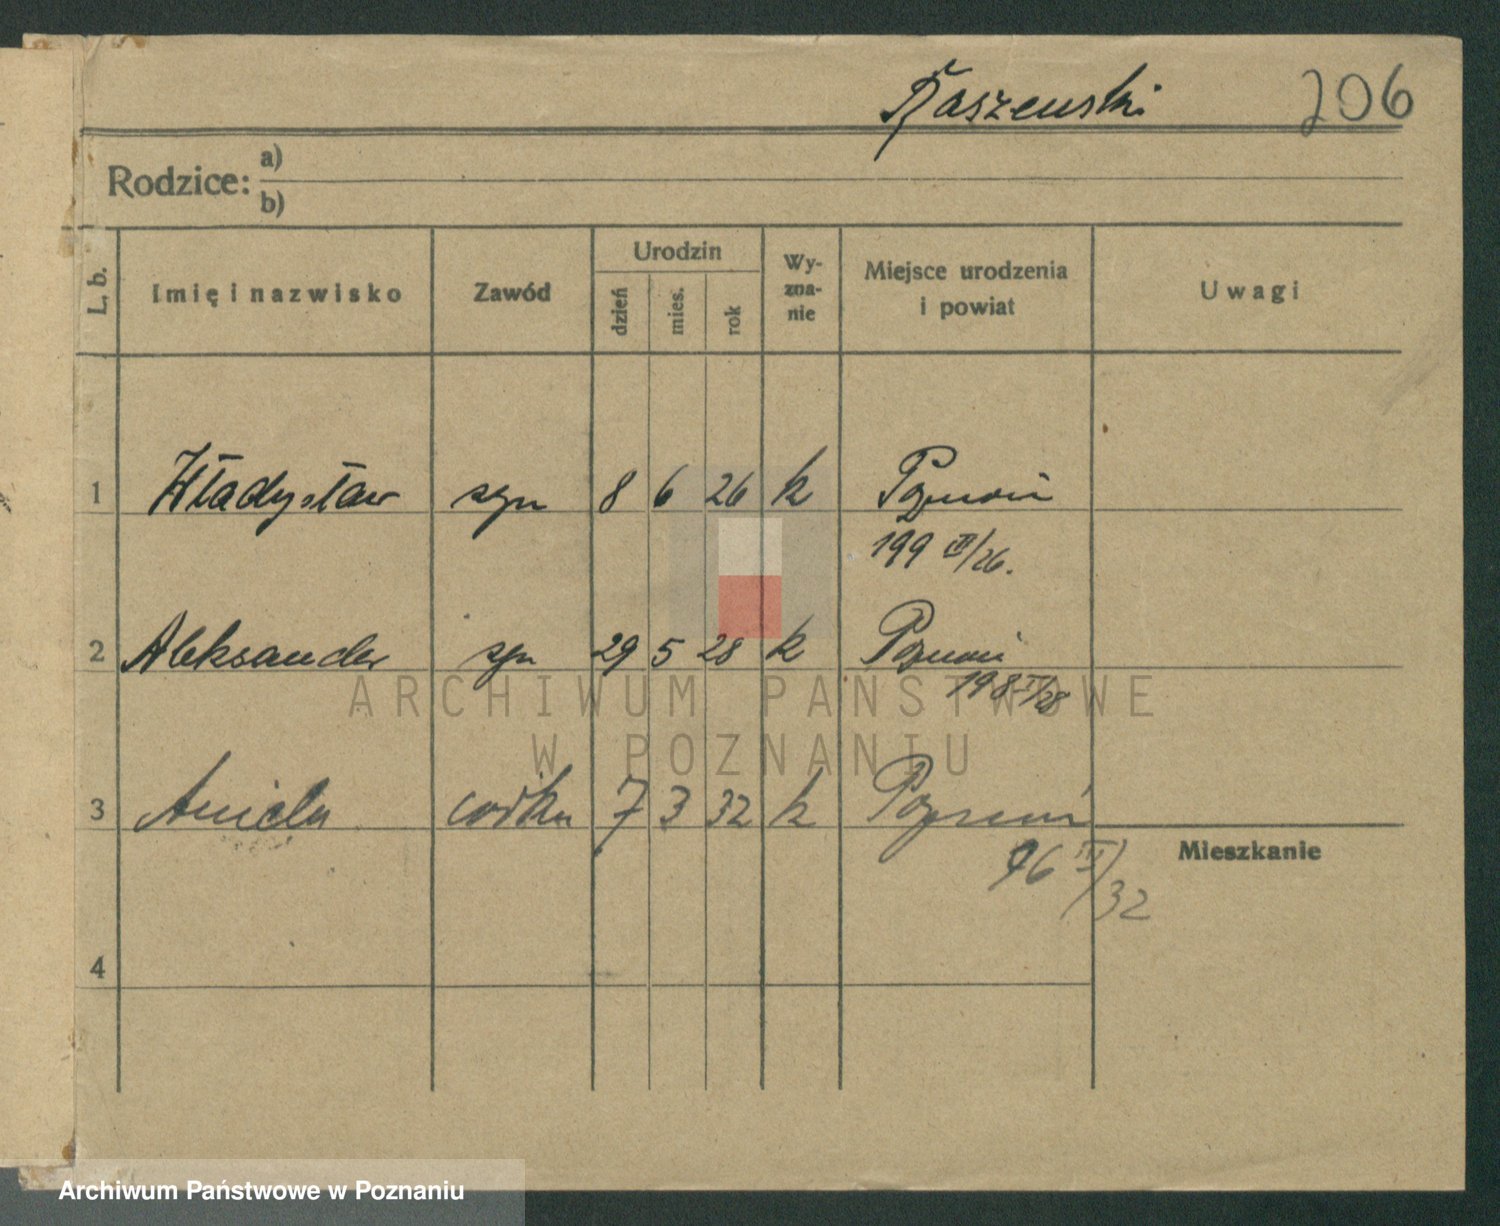 Raszewski 206
Rodzice: a)
b)
L. b. Imię i nazwisko Zawód Urodzin dzień mies. rok Wy-zna-nie Miejsce urodzenia i powiat Uwagi
1 Władysław syn 8 6 26 k Poznań
199 III/26.
2 Aleksander syn 29 5 28 k Poznań
198 /28
3 Aniela córka 7 3 32 k Poznań
96 III/32
Mieszkanie
4
ARCHIWUM PAŃSTWOWE
W POZNANIU
Archiwum Państwowe w Poznaniu